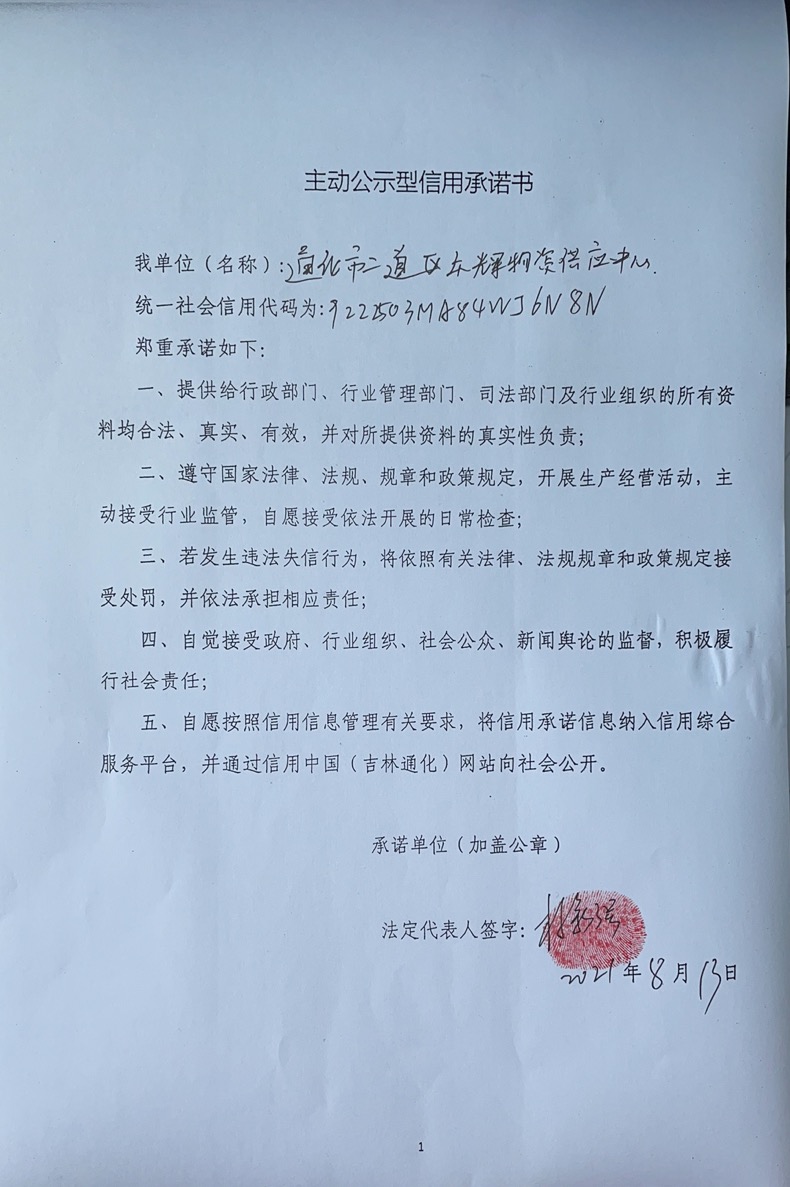 主动公示型信用承诺书
我单位(名称):通化市二道区东辉物资供应中心.
统一社会信用代码为:922503MA84WJ6N8N
郑重承诺如下:
一、提供给行政部门、行业管理部门、司法部门及行业组织的所有资
料均合法、真实、有效,并对所提供资料的真实性负责;
二、遵守国家法律、法规、规章和政策规定,开展生产经营活动,主
动接受行业监管,自愿接受依法开展的日常检查;
三、若发生违法失信行为,将依照有关法律、法规规章和政策规定接
受处罚,并依法承担相应责任;
四、自觉接受政府、行业组织、社会公众、新闻舆论的监督,积极履
行社会责任;
五、自愿按照信用信息管理有关要求,将信用承诺信息纳入信用综合
服务平台,并通过信用中国(吉林通化)网站向社会公开。
承诺单位(加盖公章)
法定代表人签字:
2021年8月13日
1